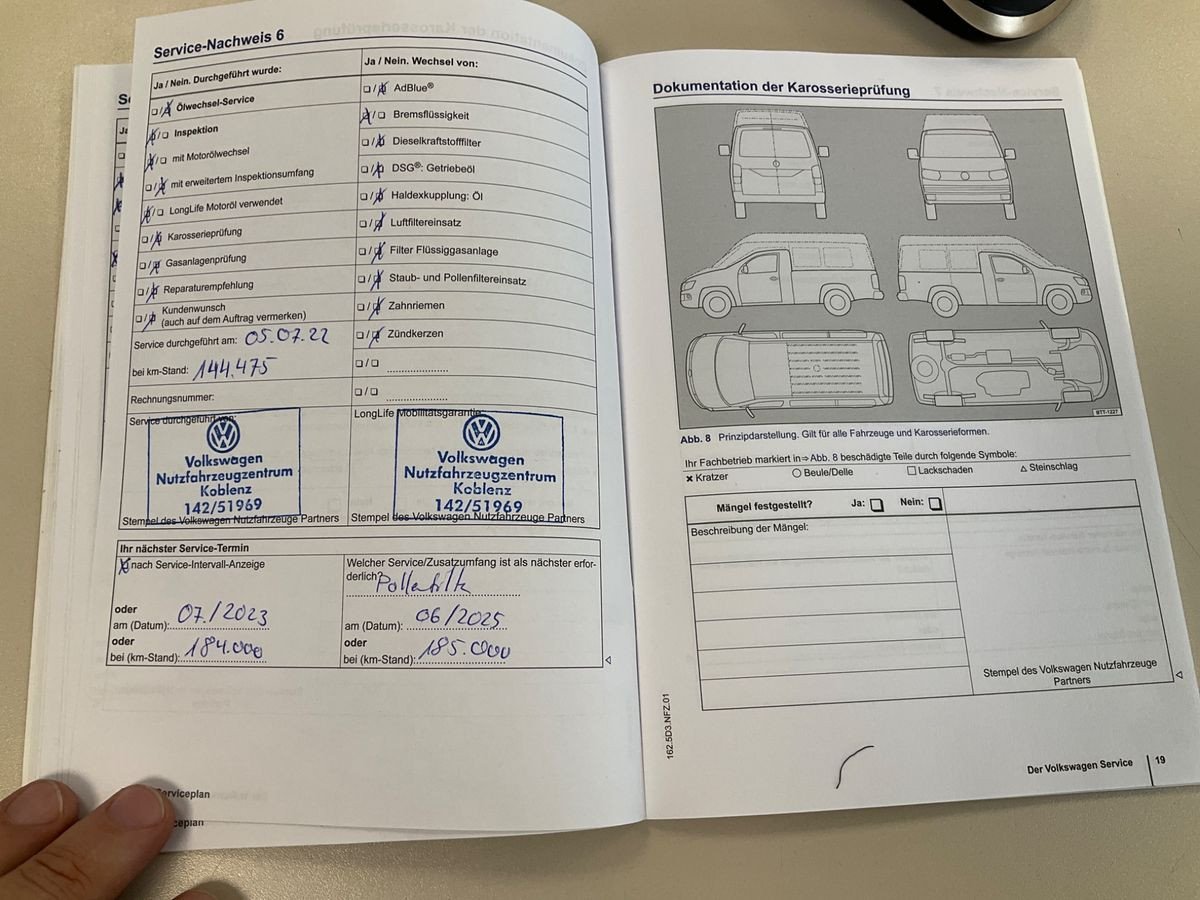 Service-Nachweis 6
Ja / Nein. Durchgeführt wurde:
Ölwechsel-Service
Inspektion
mit Motorölwechsel
mit erweitertem Inspektionsumfang
LongLife Motoröl verwendet
Karosserieprüfung
Gasanlagenprüfung
Reparaturempfehlung
Kundenwunsch
(auch auf dem Auftrag vermerken)
Service durchgeführt am: 05.07.22
bei km-Stand: 144.475
Rechnungsnummer:
Service durchgeführt von:
Volkswagen
Nutzfahrzeugzentrum
Koblenz
142/51969
Stempel des Volkswagen Nutzfahrzeuge Partners
Ja / Nein. Wechsel von:
AdBlue®
Bremsflüssigkeit
Dieselkraftstofffilter
DSG®: Getriebeöl
Haldexkupplung: Öl
Luftfiltereinsatz
Filter Flüssiggasanlage
Staub- und Pollenfiltereinsatz
Zahnriemen
Zündkerzen
LongLife Mobilitätsgarantie:
Volkswagen
Nutzfahrzeugzentrum
Koblenz
142/51969
Stempel des Volkswagen Nutzfahrzeuge Partners
Ihr nächster Service-Termin
nach Service-Intervall-Anzeige
oder
am (Datum): 07/2023
oder
bei (km-Stand): 184.000
Welcher Service/Zusatzumfang ist als nächster erfor-
derlich? Pollenfilter
am (Datum): 06/2025
oder
bei (km-Stand): 185.000
Serviceplan
Dokumentation der Karosserieprüfung
BTT-1227
Abb. 8 Prinzipdarstellung. Gilt für alle Fahrzeuge und Karosserieformen.
Ihr Fachbetrieb markiert in⇒Abb. 8 beschädigte Teile durch folgende Symbole:
× Kratzer ○ Beule/Delle □ Lackschaden △ Steinschlag
Mängel festgestellt? Ja: Nein:
Beschreibung der Mängel:
Stempel des Volkswagen Nutzfahrzeuge
Partners
162.5D3.NFZ.01
Der Volkswagen Service 19